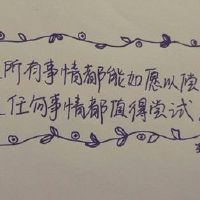 所有事情都能如愿以偿
任何事情都值得尝试